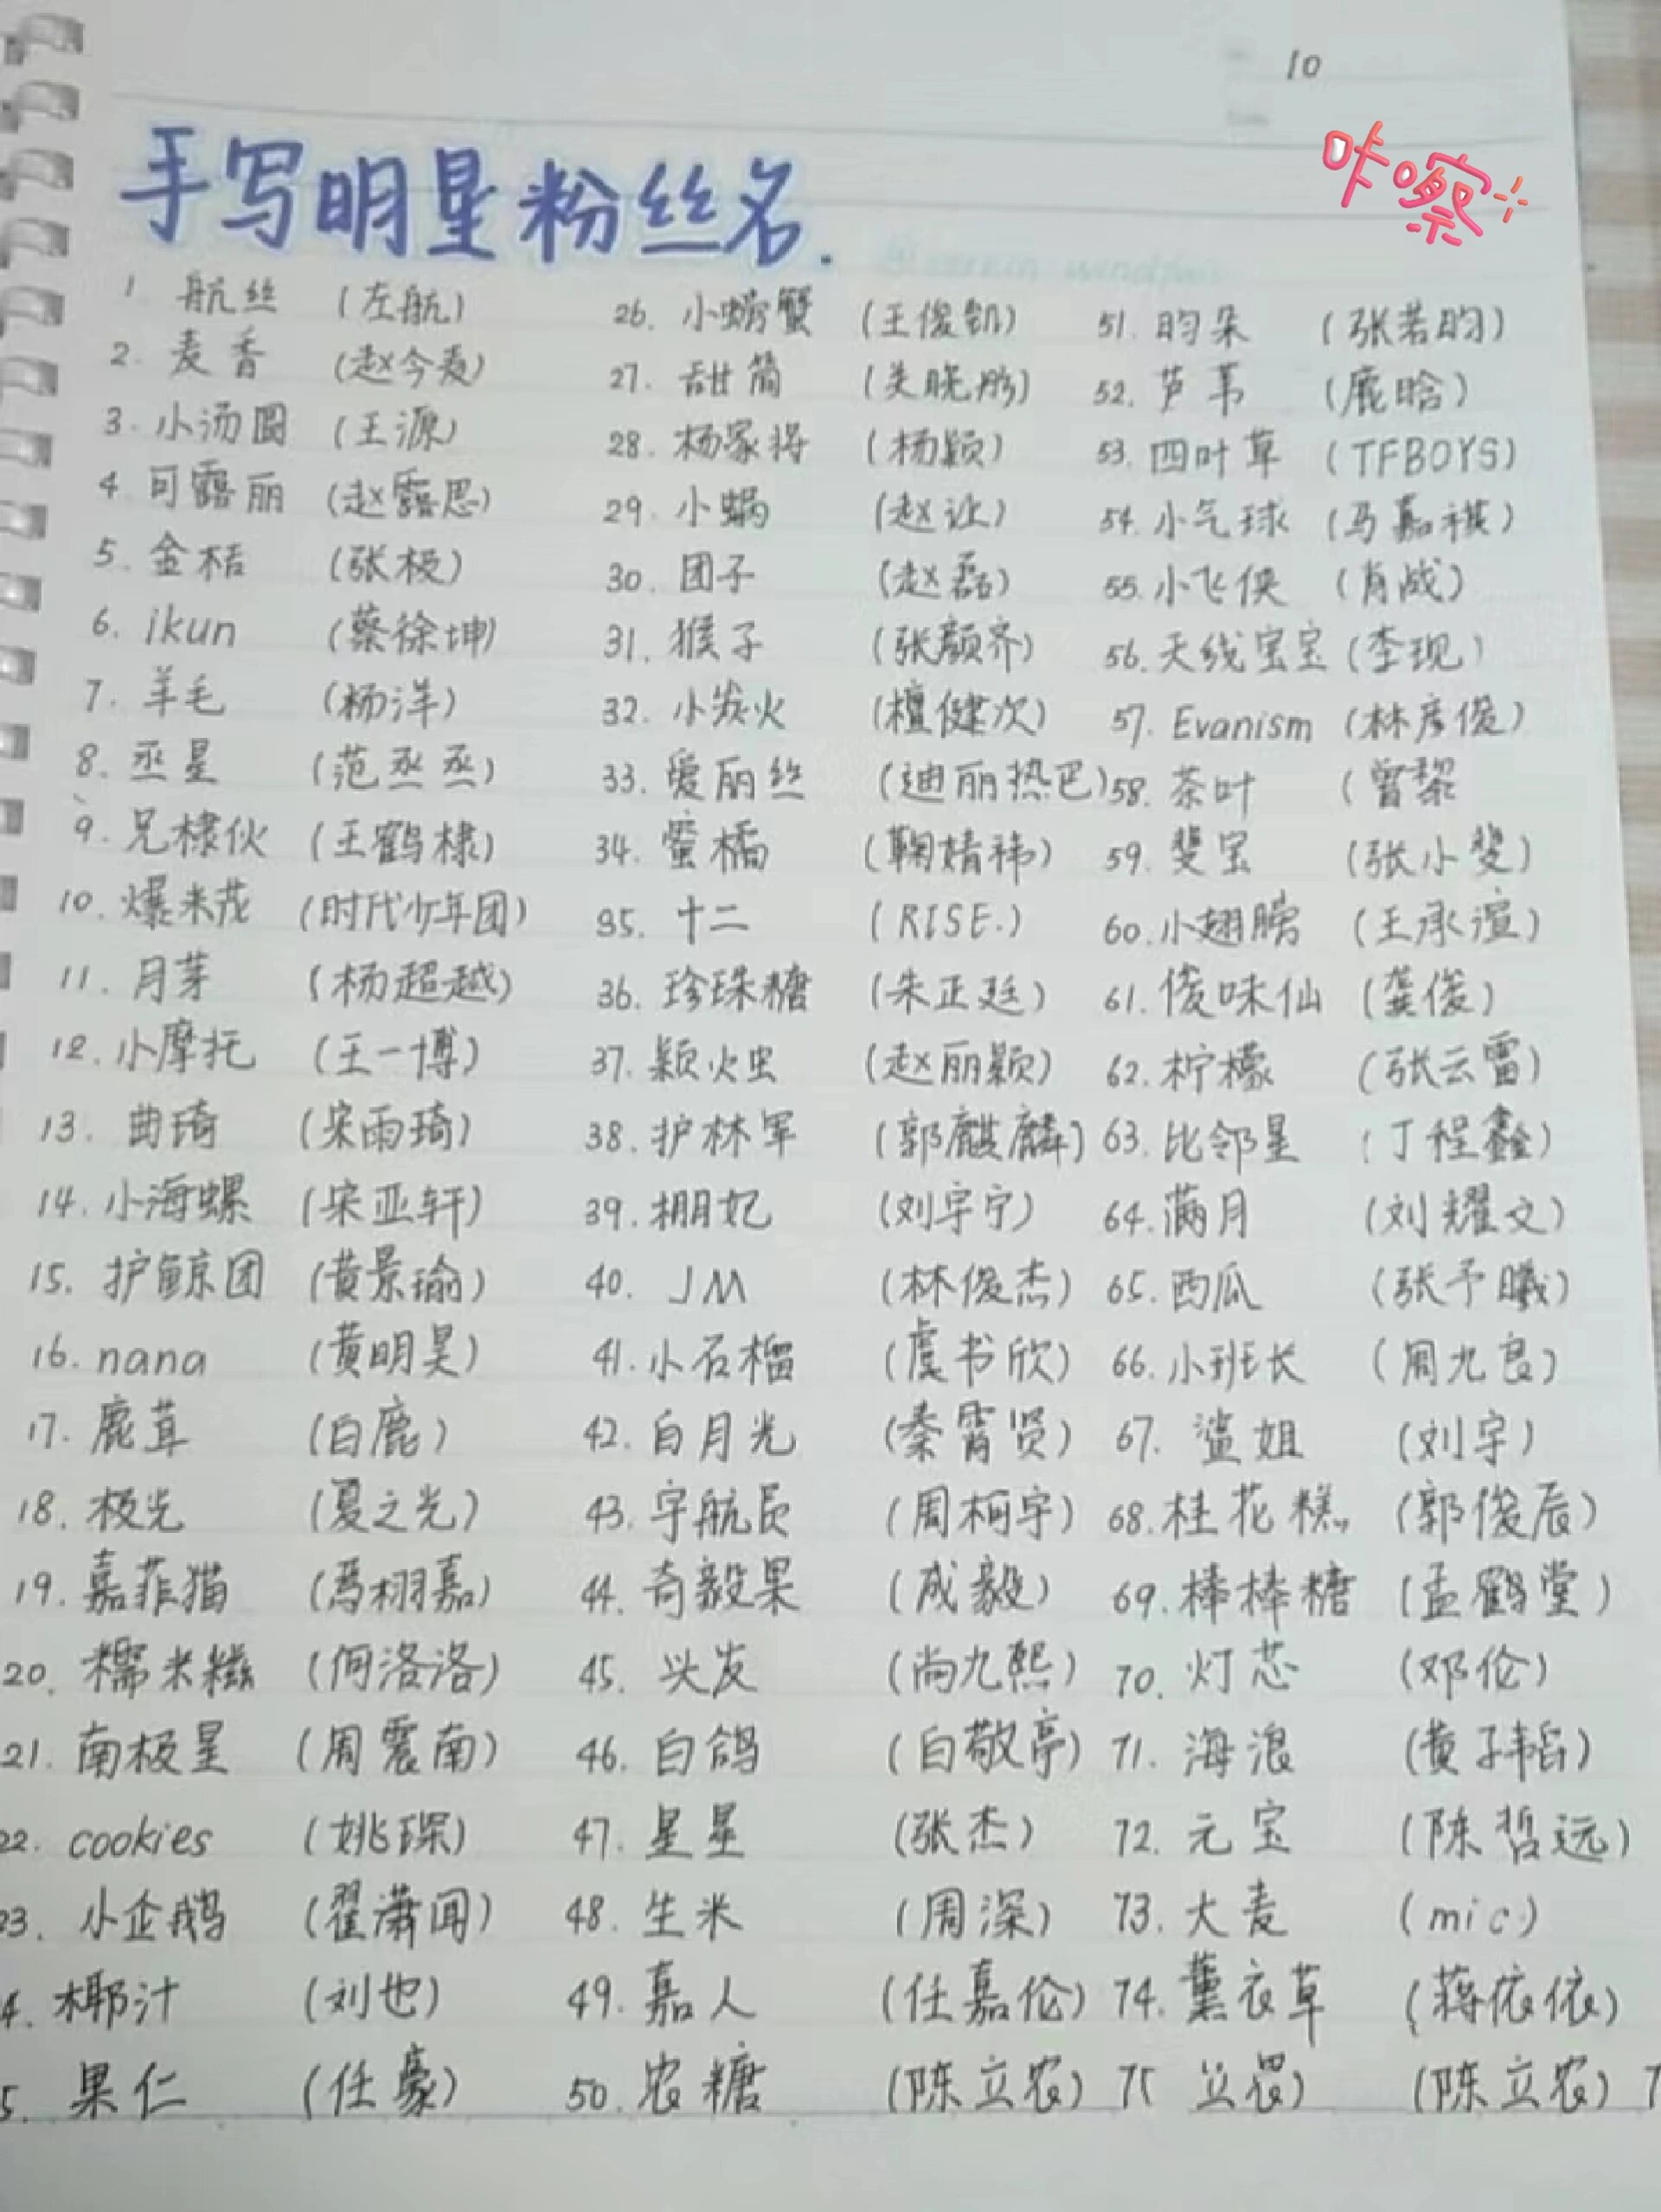 10
咔嚓
手写明星粉丝名.
1. 航丝 (左航)
2. 麦香 (赵今麦)
3. 小汤圆 (王源)
4. 可露丽 (赵露思)
5. 金桔 (张极)
6. ikun (蔡徐坤)
7. 羊毛 (杨洋)
8. 丞星 (范丞丞)
9. 兄棣伙 (王鹤棣)
10. 爆米茂 (时代少年团)
11. 月芽 (杨超越)
12. 小摩托 (王一博)
13. 曲琦 (宋雨琦)
14. 小海螺 (宋亚轩)
15. 护鲸团 (黄景瑜)
16. nana (黄明昊)
17. 鹿茸 (白鹿)
18. 极光 (夏之光)
19. 嘉菲猫 (焉栩嘉)
20. 糯米糍 (何洛洛)
21. 南极星 (周震南)
22. cookies (姚琛)
23. 小企鹅 (翟潇闻)
4. 椰汁 (刘也)
5. 果仁 (任豪)
26. 小螃蟹 (王俊凯)
27. 甜筒 (关晓彤)
28. 杨家将 (杨颖)
29. 小蜗 (赵让)
30. 团子 (赵磊)
31. 猴子 (张颜齐)
32. 小炭火 (檀健次)
33. 爱丽丝 (迪丽热巴)
34. 蜜橘 (鞠婧祎)
35. 十二 (RISE.)
36. 珍珠糖 (朱正廷)
37. 颖火虫 (赵丽颖)
38. 护林军 (郭麒麟)
39. 棚妃 (刘宇宁)
40. JM (林俊杰)
41. 小石榴 (虞书欣)
42. 白月光 (秦霄贤)
43. 宇航员 (周柯宇)
44. 奇毅果 (成毅)
45. 兴发 (尚九熙)
46. 白鸽 (白敬亭)
47. 星星 (张杰)
48. 生米 (周深)
49. 嘉人 (任嘉伦)
50. 农糖 (陈立农)
51. 昀朵 (张若昀)
52. 芦苇 (鹿晗)
53. 四叶草 (TFBOYS)
54. 小气球 (马嘉祺)
55. 小飞侠 (肖战)
56. 天线宝宝 (李现)
57. Evanism (林彦俊)
58. 茶叶 (曾黎
59. 斐宝 (张小斐)
60. 小翅膀 (王承渲)
61. 俊味仙 (龚俊)
62. 柠檬 (张云雷)
63. 比邻星 (丁程鑫)
64. 满月 (刘耀文)
65. 西瓜 (张予曦)
66. 小班长 (周九良)
67. 盗姐 (刘宇)
68. 桂花糕 (郭俊辰)
69. 棒棒糖 (孟鹤堂)
70. 灯芯 (邓伦)
71. 海浪 (黄子韬)
72. 元宝 (陈哲远)
73. 大麦 (mic)
74. 薰衣草 (蒋依依)
75 (陈立农) 7